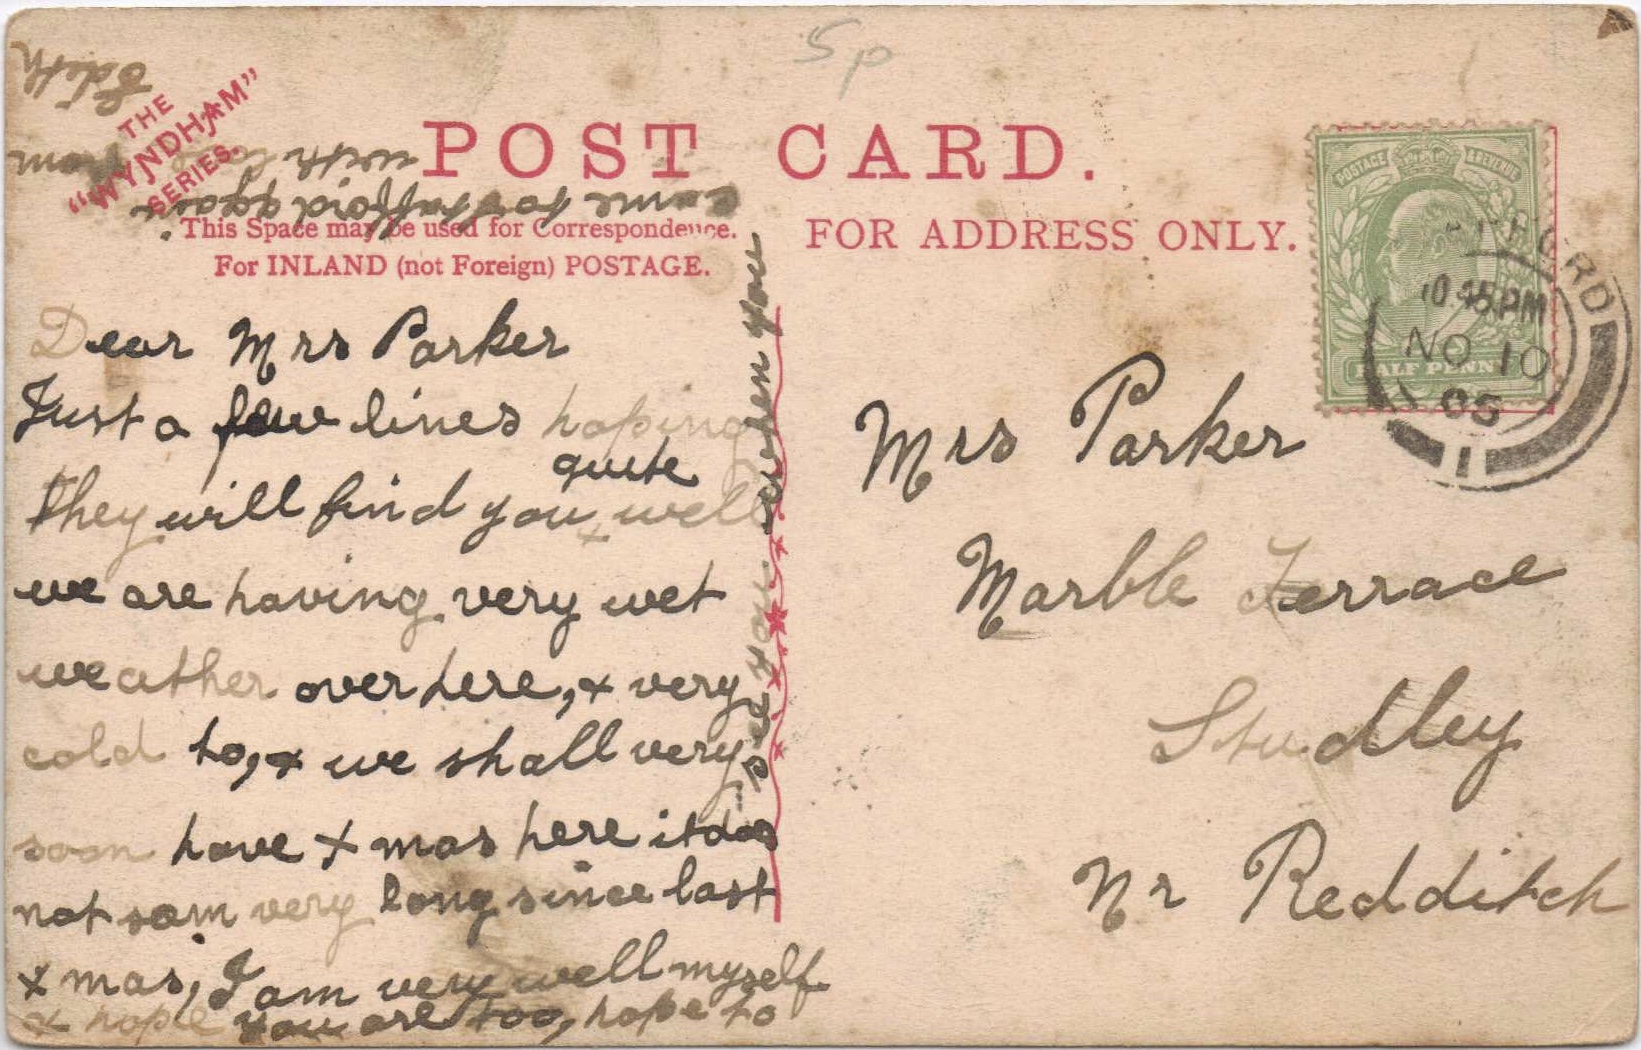 5p
THE
"WYNDHAM"
SERIES.
POST CARD.
This Space may be used for Correspondence.
For INLAND (not Foreign) POSTAGE.
FOR ADDRESS ONLY.
POSTAGE & REVENUE
HALF PENNY
10.45PM
NO 10
05
1
Dear Mrs Parker
Just a few lines hoping
they will find you quite well
we are having very wet
weather over here, & very
cold to, & we shall very
soon have Xmas here it does
not seem very long since last
Xmas, I am very well myself
& hope you are too, hope to
see you when you
come to Stafford again
with love from
Edith
Mrs Parker
Marble Terrace
Studley
Nr Redditch